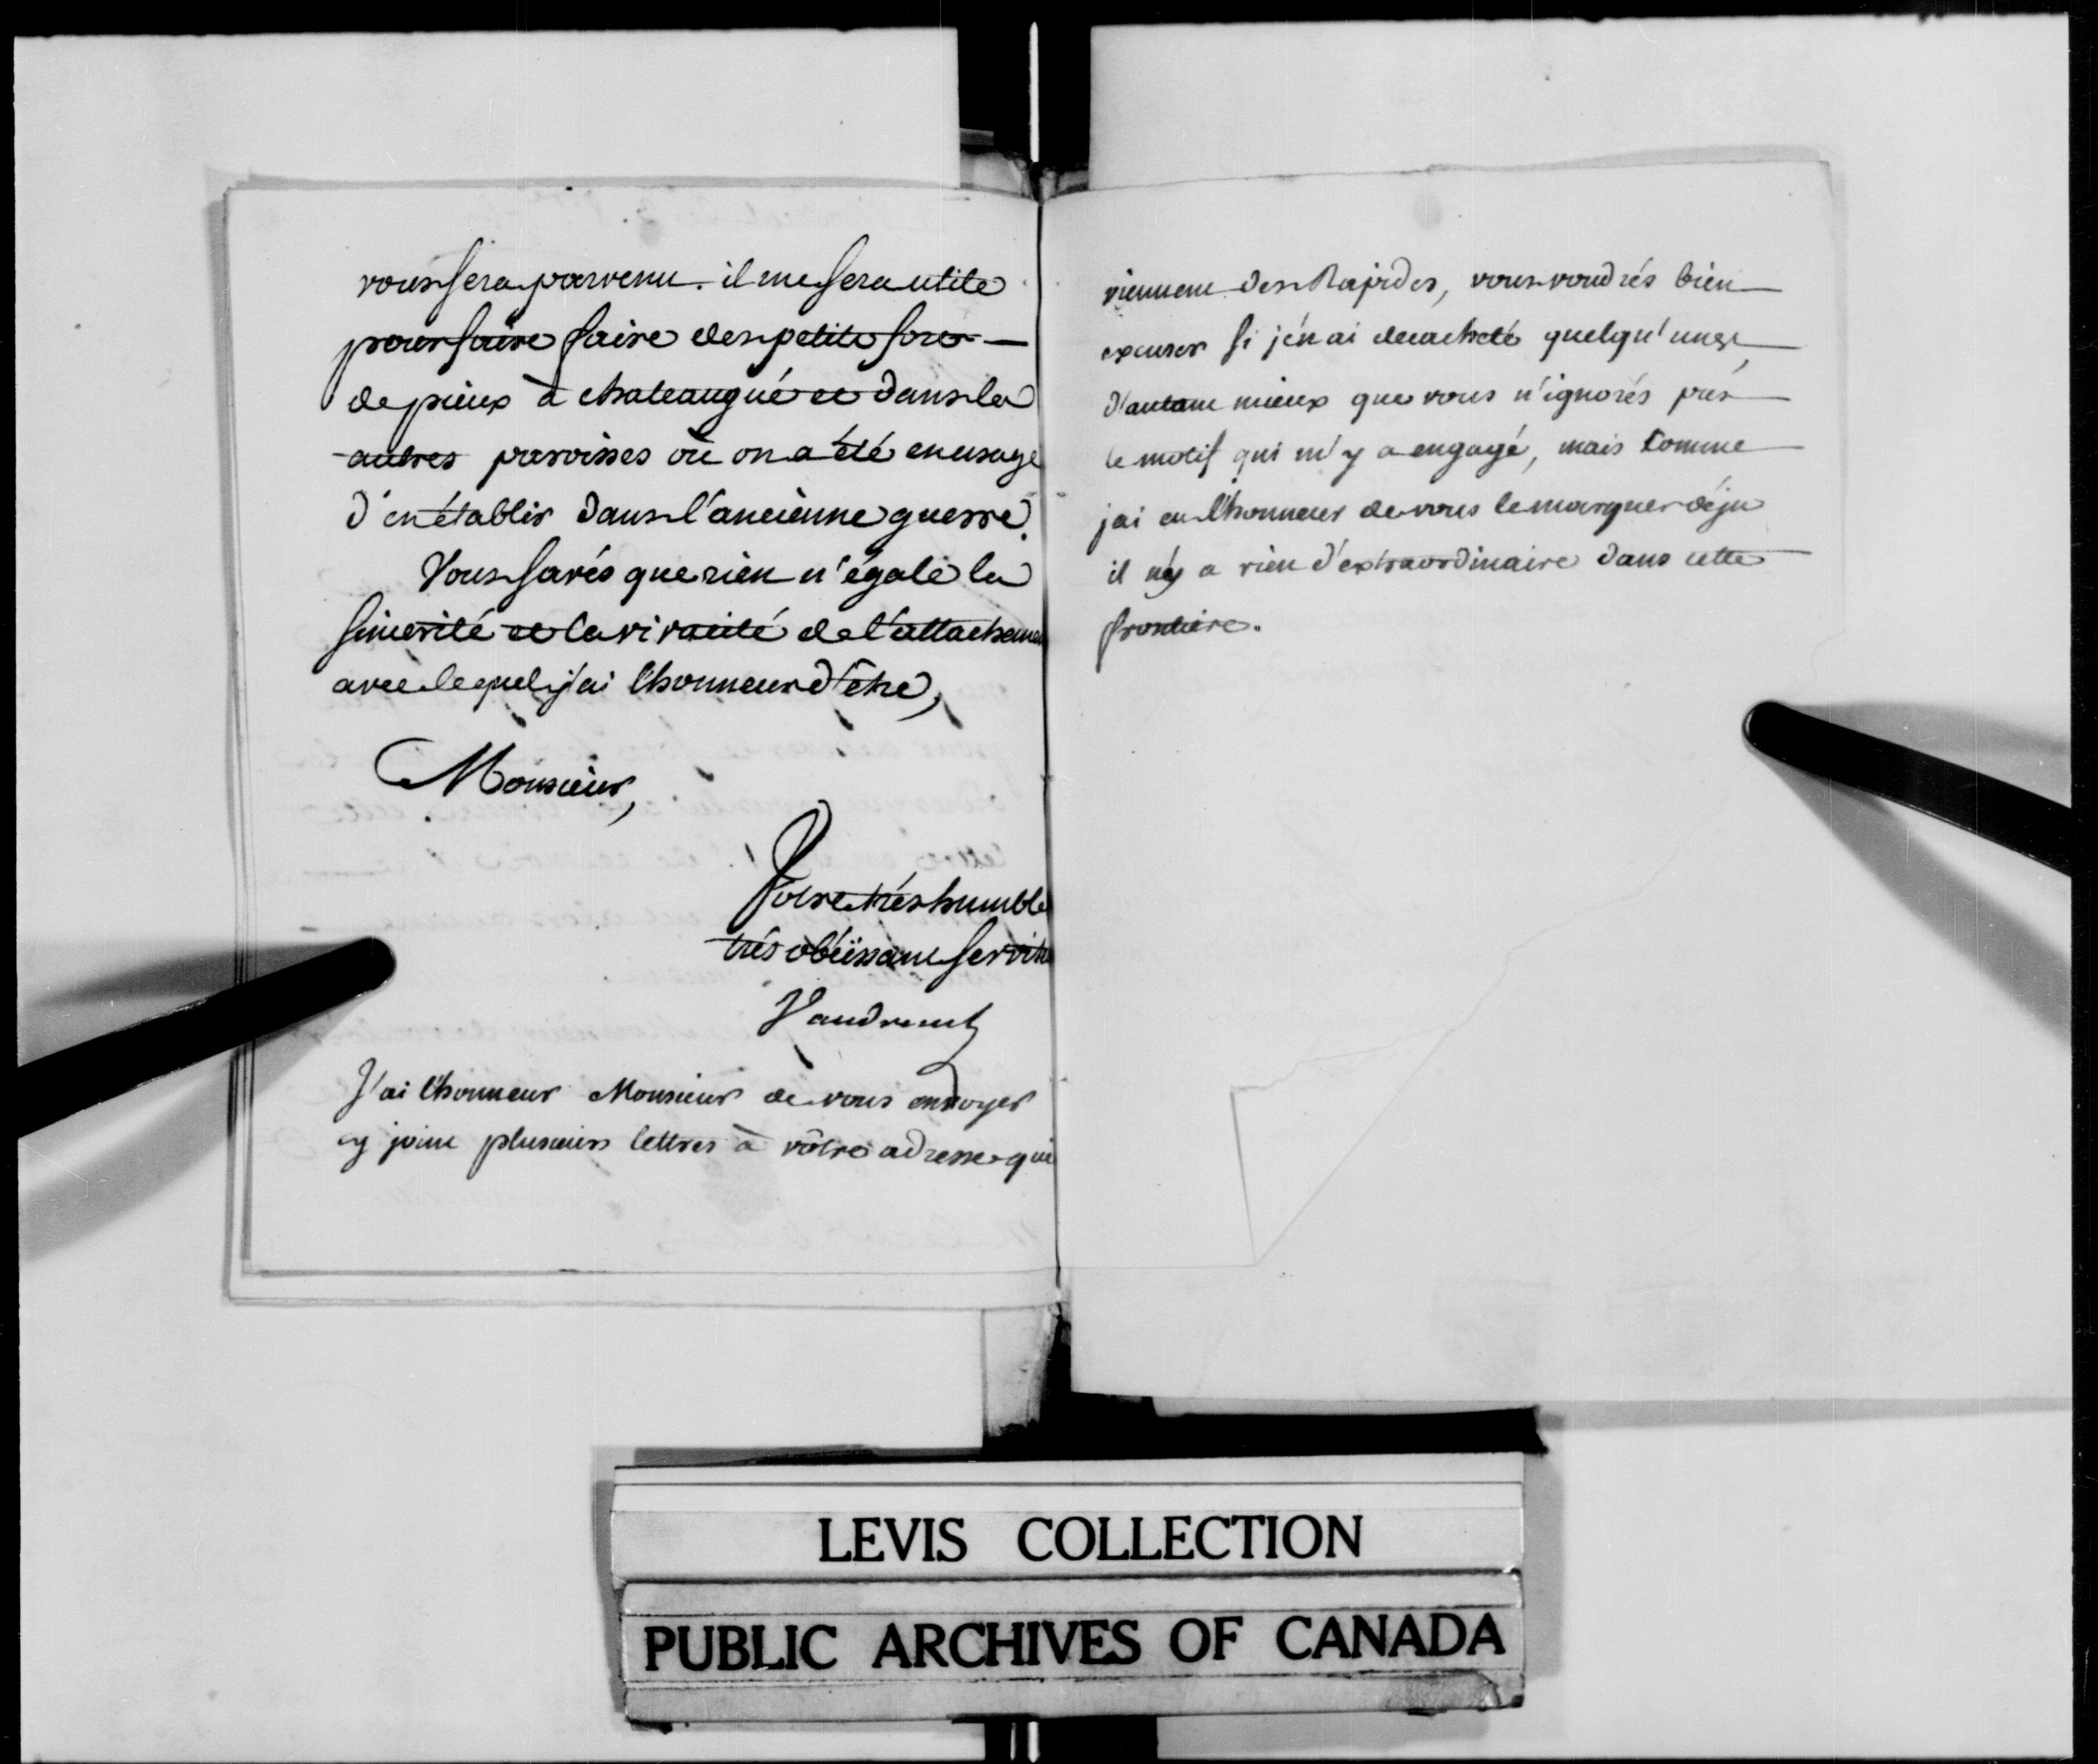 vous sera parvenu. il me sera utile
pour faire faire des petits forts
de pieux à chateaugué et dans les
autres paroisses où on a été en usage
d'en établir dans l'ancienne guerre.
Vous savés que rien n'égale la
sincerité et la vivacité de l'attachement
avec lequel j'ai l'honneur d'être,
Monsieur,
Votre très humble
très obéissant servite
Vaudreuil
J'ai l'honneur Monsieur de vous envoyer
cy joint plusieurs lettres à vôtre adresse qui
viennent des Rapides, vous voudrés bien
excuser si j'en ai decacheté quelqu'unes,
d'autant mieux que vous n'ignorés pas
le motif qui m'y a engagé, mais comme
j'ai eu l'honneur de vous le marquer déja
il n'y a rien d'extraordinaire dans cette
frontiere.
LEVIS COLLECTION
PUBLIC ARCHIVES OF CANADA